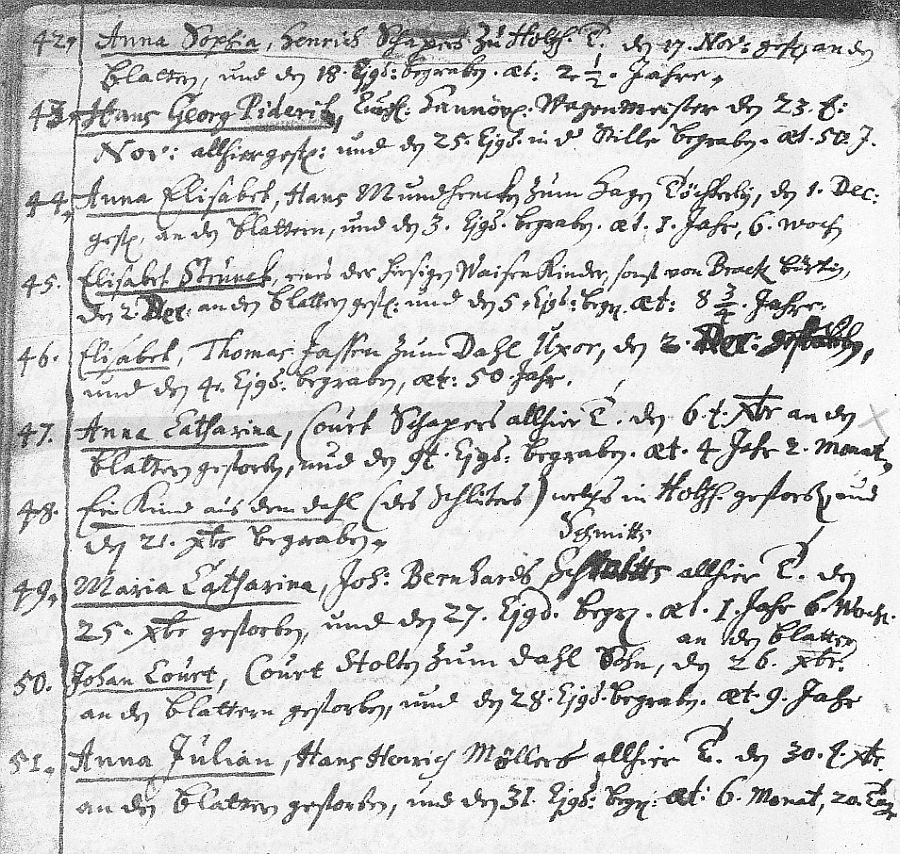 42. Anna Sophia, Henrich Schapers zu Holzh. T. den 17. Nov: gest. an den
blattern, und den 18. Ejgd: begraben. æt: 2 1/2. Jahre.
43. Hans Georg Piderit, Hannöv: Wagenmeister den 23.
Nov: allhier gest: und den 25. Ejgd. in d. Stille begraben. æt. 50. J.
44. Anna Elisabet, Hans Mundhencken zum Hagen Töchterl., den 1. Dec:
gest. an den blattern, und den 3. Ejgd. begraben. æt. 1. Jahr, 6. woch
45. Elisabet Strunck, eines der hiesigen Waisen Kinder, sonst von Brack bürtig,
den 2. Dec. an den blattern gest: und den 5. Ejgd: begr. æt: 8 3/4. Jahre.
46. Elisabet, Thomas Jassen zum Dahl Uxor, den 2. Dec: gestorben,
und den 4. Ejgd. begraben, æt: 50. Jahr.
47. Anna Catharina, Court Schapers allhier T. den 6. t. Xbr an den
blattern gestorben, und den 9t. Ejgd: begraben. æt. 4 Jahr 2. Monat.
48. Ein Kind aus dem dahl (des Schlüters) welchs in Holzh. gestorb. und
den 21. Xbr begraben.
Schmitts
49. Maria Catharina, Joh: Bernhards allhier T. den
25. Xbr gestorben, und den 27. Ejgd. begr. æt. 1. Jahr 6. Woch.
an den blattern
50. Johan Court, Court Stolten zum dahl Sohn, den 26. Xbr.
an den blattern gestorben, und den 28. Ejgd. begraben. æt. 9. Jahr
51. Anna Julian, Hans Henrich Möllers allhier T. den 30. t. Xbr
an den blattern gestorben, und den 31. Ejgd: begr: æt: 6. Monat, 20. Tage